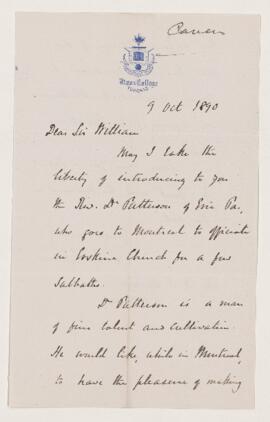 Caven
Knox College
TORONTO
9 Oct 1890
Dear Sir William
May I take the
liberty of introducing to you
the Rev. Dr Patterson of Erie Pa,
who goes to Montreal to officiate
in Erskine Church for a few
Sabbaths.
Dr Patterson is a man
of fine talent and cultivation.
He would like, while in Montreal,
to have the pleasure of making